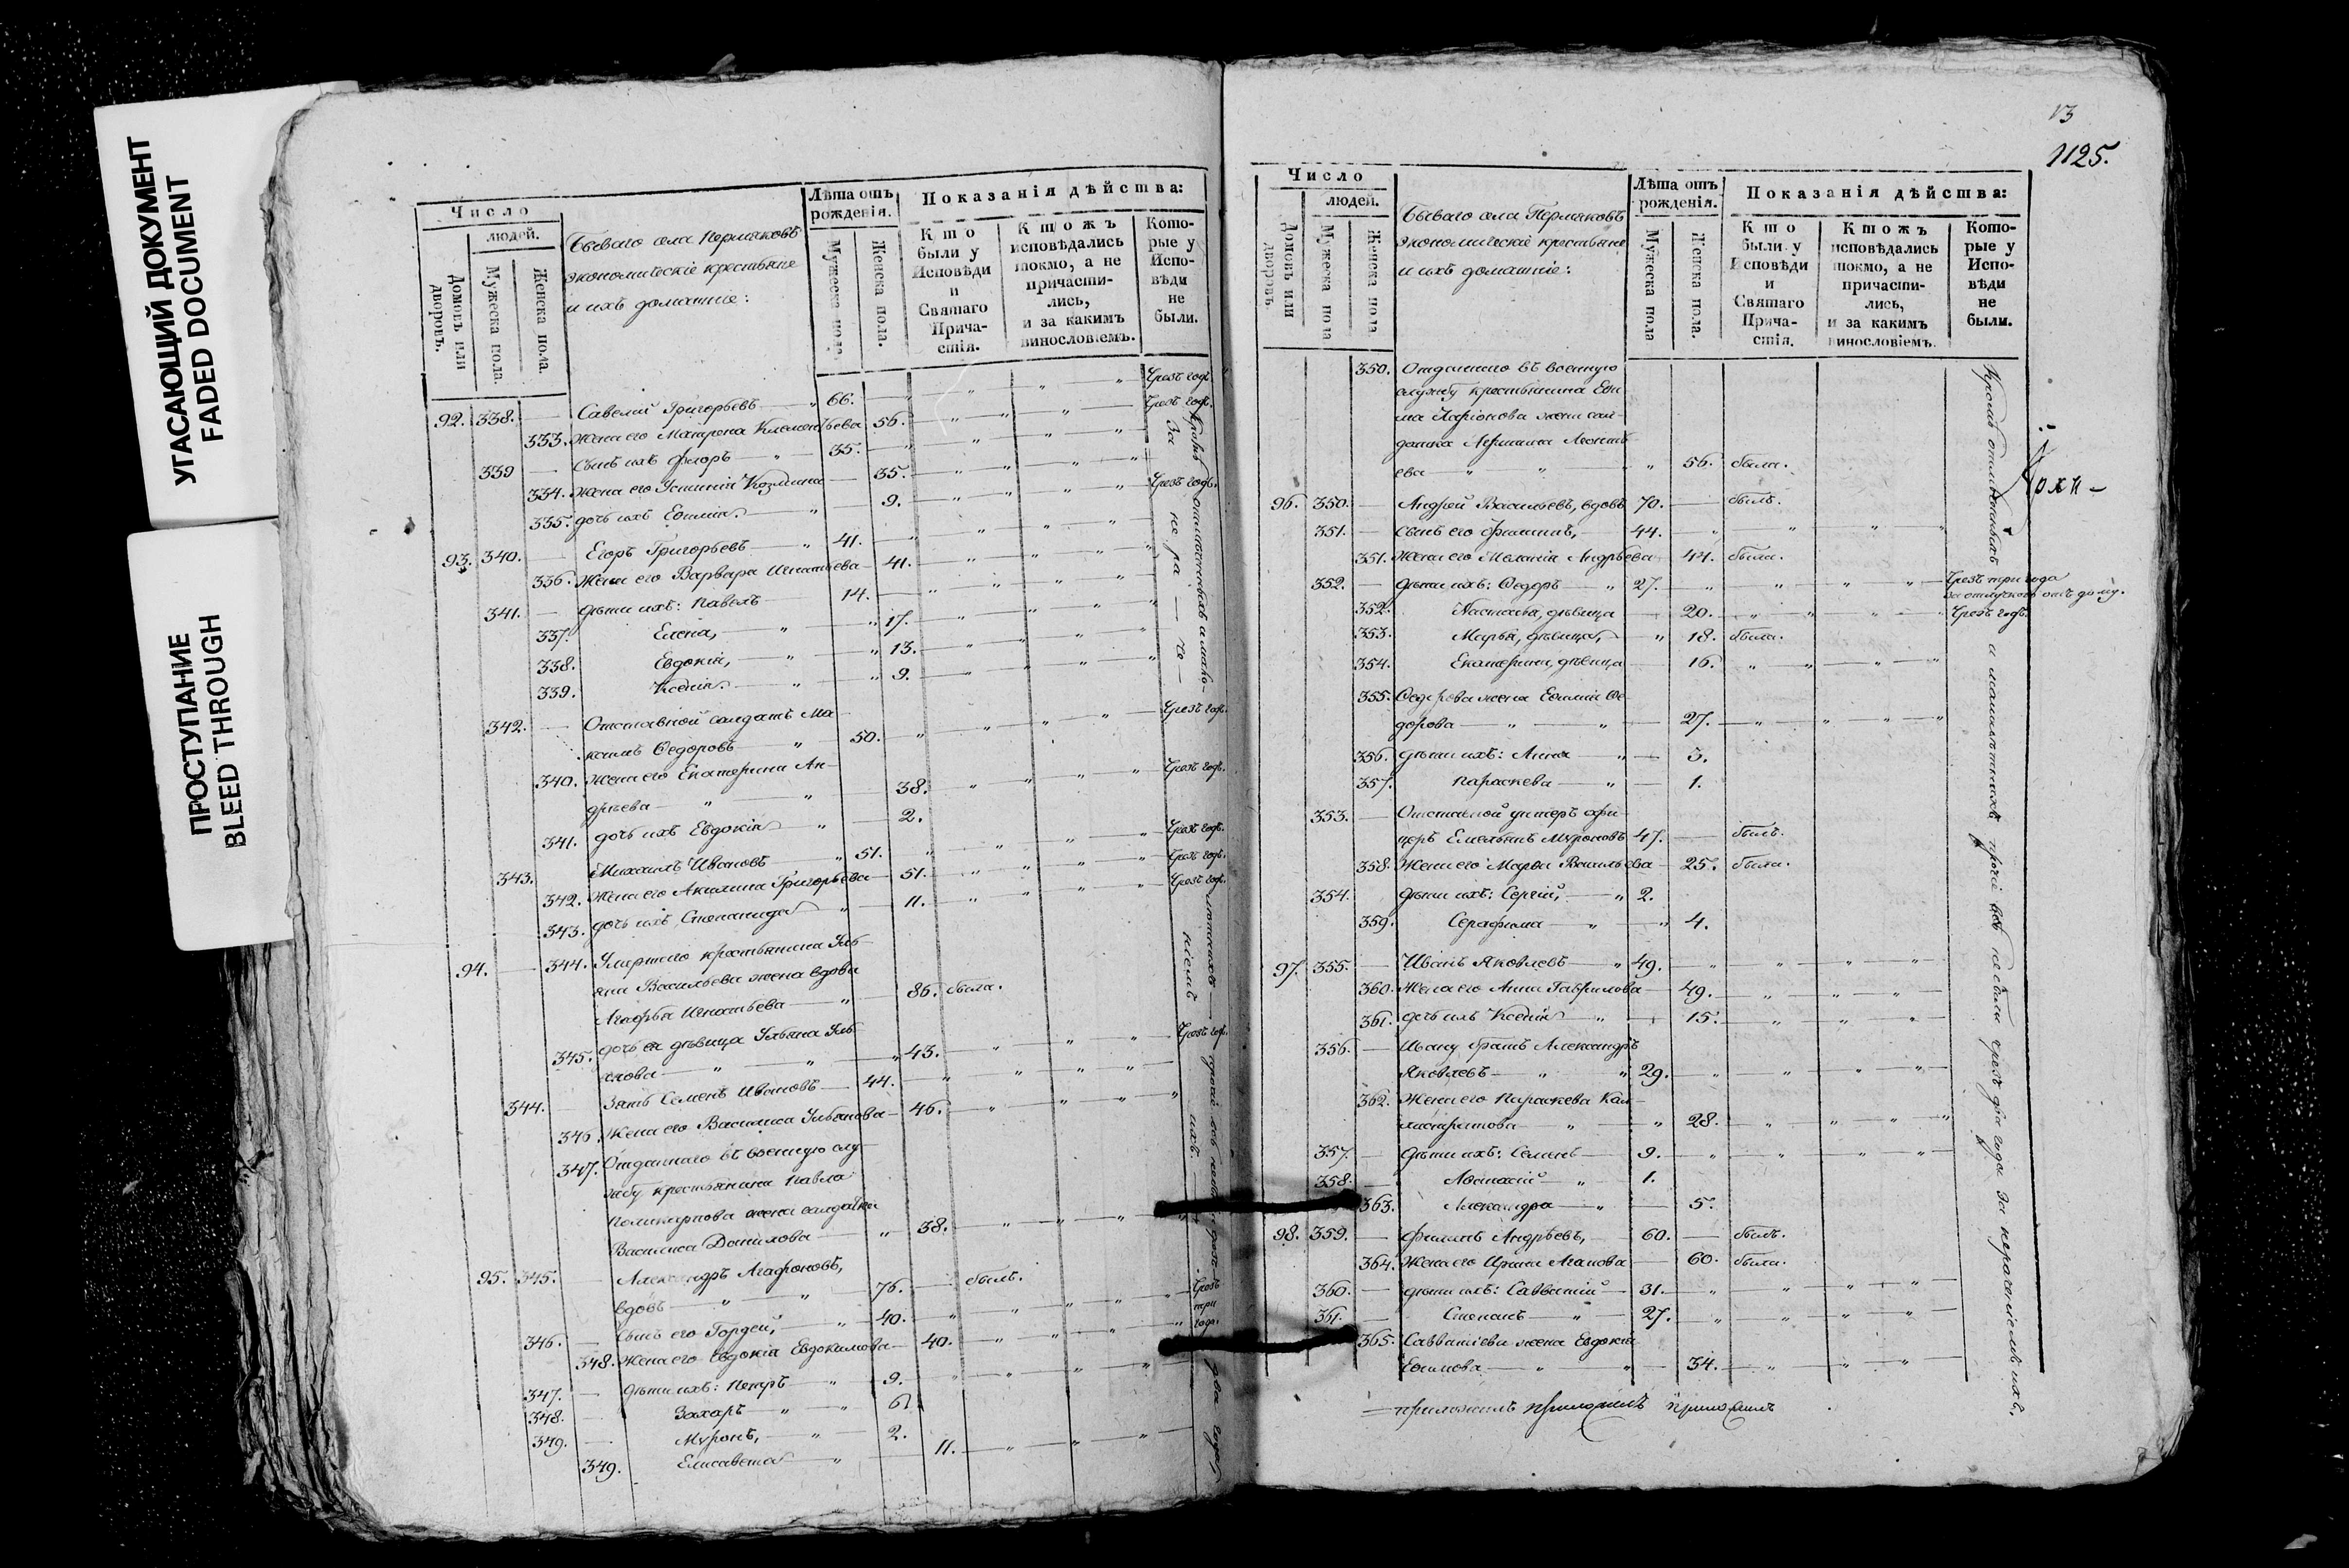 УГАСАЮЩИЙ ДОКУМЕНТ
FADED DOCUMENT
ПРОСТУПАНИЕ
BLEED THROUGH
Число
людей.
Домовъ или дворовъ.
Мужеска пола.
Женска пола.
Бываго села Пермяковъ
экономическіе крестьяне
и ихъ домашніе:
Лѣта отъ рожденія.
Мужеска пола.
Женска пола.
Показанія дѣйства:
Кто были у Исповѣди и Святаго Причастія.
Ктожъ исповѣдались токмо, а не причастились, и за какимъ винословіемъ.
Которые у Исповѣди не были.
92. 338. — Савелій Григорьевъ — „ 66. Чрезъ годъ.
333. Жена его Матрена Климентьева 56. Чрезъ годъ.
339 — Сынъ ихъ Флоръ — „ 35.
334. Жена его Устинія Козмина — 35.
335. дочь ихъ Евѳимія. — „ 9. Чрезъ годъ.
93. 340. — Егоръ Григорьевъ — „ 41.
336. Жена его Варвара Игнатьева — 41.
341. — дѣти ихъ: Павелъ — 14.
337. Елена, — „ 17.
338. Евдокія, — „ 13.
339. Ксенія. — „ 9.
342. — Отставной солдатъ Ма-
ксимъ Ѳедоровъ — „ 50. Чрезъ годъ.
340. Жена его Екатерина Ан-
дреева — „ — „ 38. Чрезъ годъ.
341. дочь ихъ Евдокія — „ 2.
343. Михаилъ Ивановъ — „ 51. Чрезъ годъ.
342. Жена его Акилина Григорьева — 51. Чрезъ годъ.
343. дочь ихъ Степанида — „ 11. Чрезъ годъ.
94. — 344. Умершего крестьянина Уль-
яна Васильева жена вдова
Агафья Игнатьева — „ 86. была.
345. дочь ея дѣвица Ульяна Уль-
янова — „ — „ 43. Чрезъ годъ.
344. Зять Семенъ Ивановъ — 44.
346. Жена его Василиса Ульянова — 46.
347. Отданнаго въ военную слу-
жбу крестьянина Павла
Поликарпова жена солдатка
Василиса Данилова — „ 38.
95. 345. — Александръ Агафоновъ,
вдовъ — „ — „ 76. — былъ.
346. — Сынъ его Гордей, — „ 40. Чрезъ три года.
348. Жена его Евдокія Евдокимова — 40.
347. — дѣти ихъ: Петръ — „ 9.
348. — Захаръ — „ 6.
349. — Мѵронъ, — „ 2.
349. Елисавета — „ 11.
13
1125.
Число
людей.
Домовъ или дворовъ.
Мужеска пола
Женска пола
Бываго села Пермяковъ
экономическіе крестьяне
и ихъ домашніе:
Лѣта отъ рожденія.
Мужеска пола
Женска пола.
Показанія дѣйства:
Кто были у Исповѣди и Святаго Причастія.
Ктожъ исповѣдались токмо, а не причастились, и за какимъ винословіемъ.
Которые у Исповѣди не были.
350. Отданнаго въ военную
службу крестьянина Еѳи-
ма Ларіонова жена сол-
датка Леонть
ева — „ — „ 56. была.
96. 350. — Андрей Васильевъ, вдовъ 70. — былъ.
351. — Сынъ его Филиппъ, 44.
351. Жена его Меланія Андрѣева 44. была.
352. — дѣти ихъ: Ѳедоръ — „ 27. Чрезъ три года за отлучкою отъ дому.
352. Настасья, дѣвица — 20. Чрезъ годъ.
353. Марья, дѣвица, — „ 18. была.
354. Екатерина, дѣвица — 16.
355. Ѳедорова жена Евѳимія Ѳе
дорова — „ — „ 27.
356. дѣти ихъ: Анна — „ 3.
357. Параскева — „ 1.
353. — Отставной унтеръ офи-
церъ Емельянъ Мѵроновъ 47. — былъ.
358. Жена его Марья Васильева — 25. была.
354. дѣти ихъ: Сергій, — „ 2.
359. Серафима — „ 4.
97. 355. — Иванъ Яковлевъ — „ 49.
360. Жена его Анна Гаврилова — 49.
361. дочь ихъ Ксенія — „ 15.
356. — Ивану братъ Александръ
Яковлевъ — „ „ 29.
362. Жена его Параскева Кал-
листратова — „ „ 28.
357. — дѣти ихъ: Семенъ — 9.
358. — Аѳанасій — „ 1.
363. Александра — „ 5.
98. 359. — Филипъ Андрѣевъ, 60. — былъ.
364. Жена его Ирина Агапова — 60. была.
360. — дѣти ихъ: Савватій — 31.
361. — Степанъ — „ 27.
365. Савватіева жена Евдокія
Еѳимова — „ „ 34.
Кромѣ отмѣченныхъ и малолѣтныхъ прочіе всѣ не были чрезъ два года за нераченіемъ ихъ.